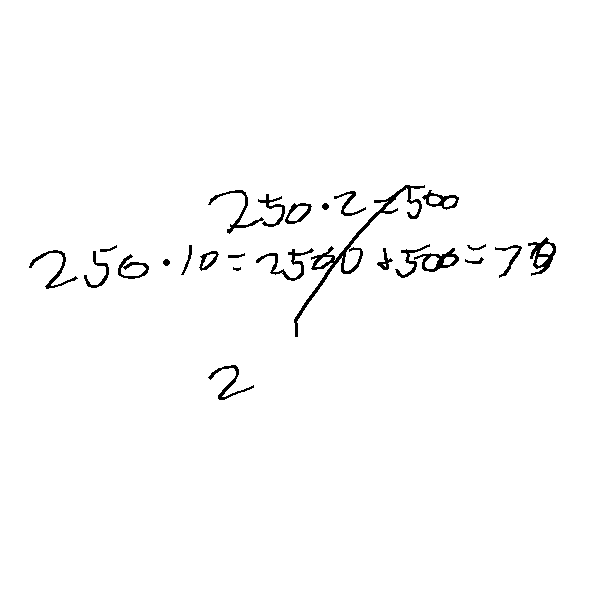 250·2=500
250·10=2500+500=7
2